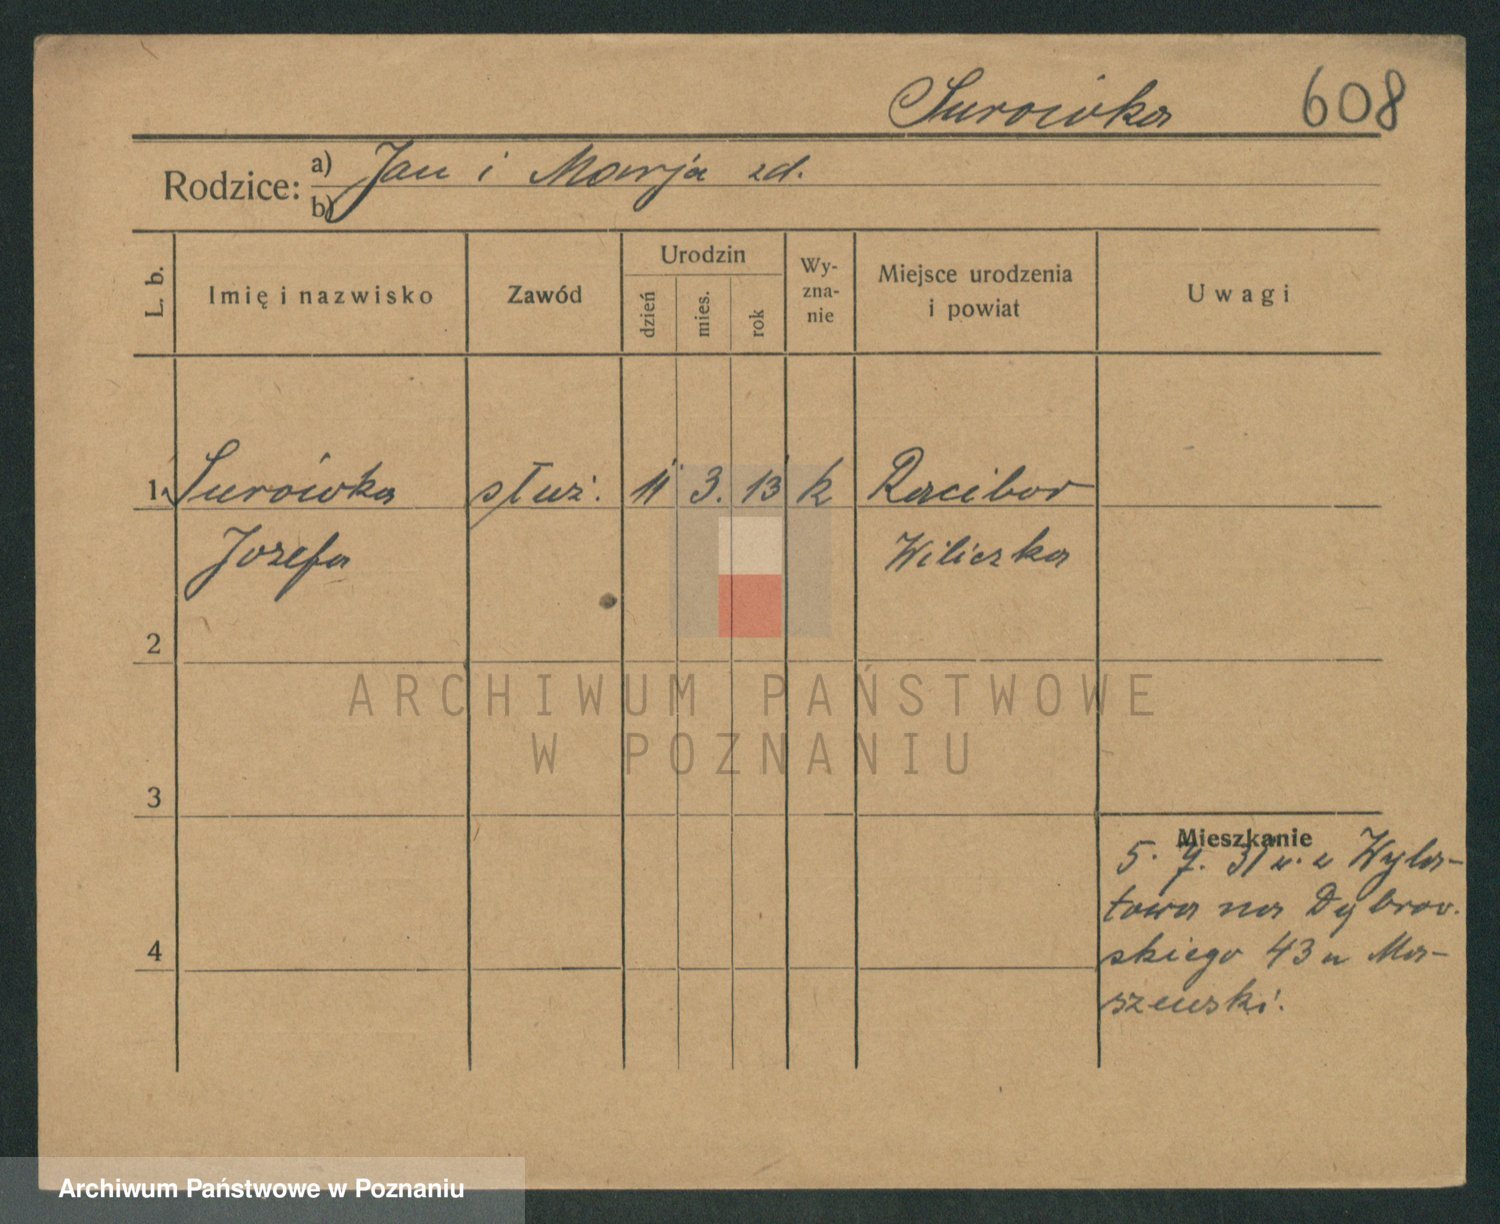 Surówka 608
Rodzice: a) Jan i Marja zd.
b)
L. b. Imię i nazwisko Zawód Urodzin dzień mies. rok Wy-zna-nie Miejsce urodzenia i powiat Uwagi
1. Surówka służ. 11 3. 13 k Racibor
Józefa Wiliczka
2
3
4
Mieszkanie
5. 7. 31 u. z Wyla-
towa na Dąbrow.
skiego 43 u Ma-
szewski.
ARCHIWUM PAŃSTWOWE
W POZNANIU
Archiwum Państwowe w Poznaniu